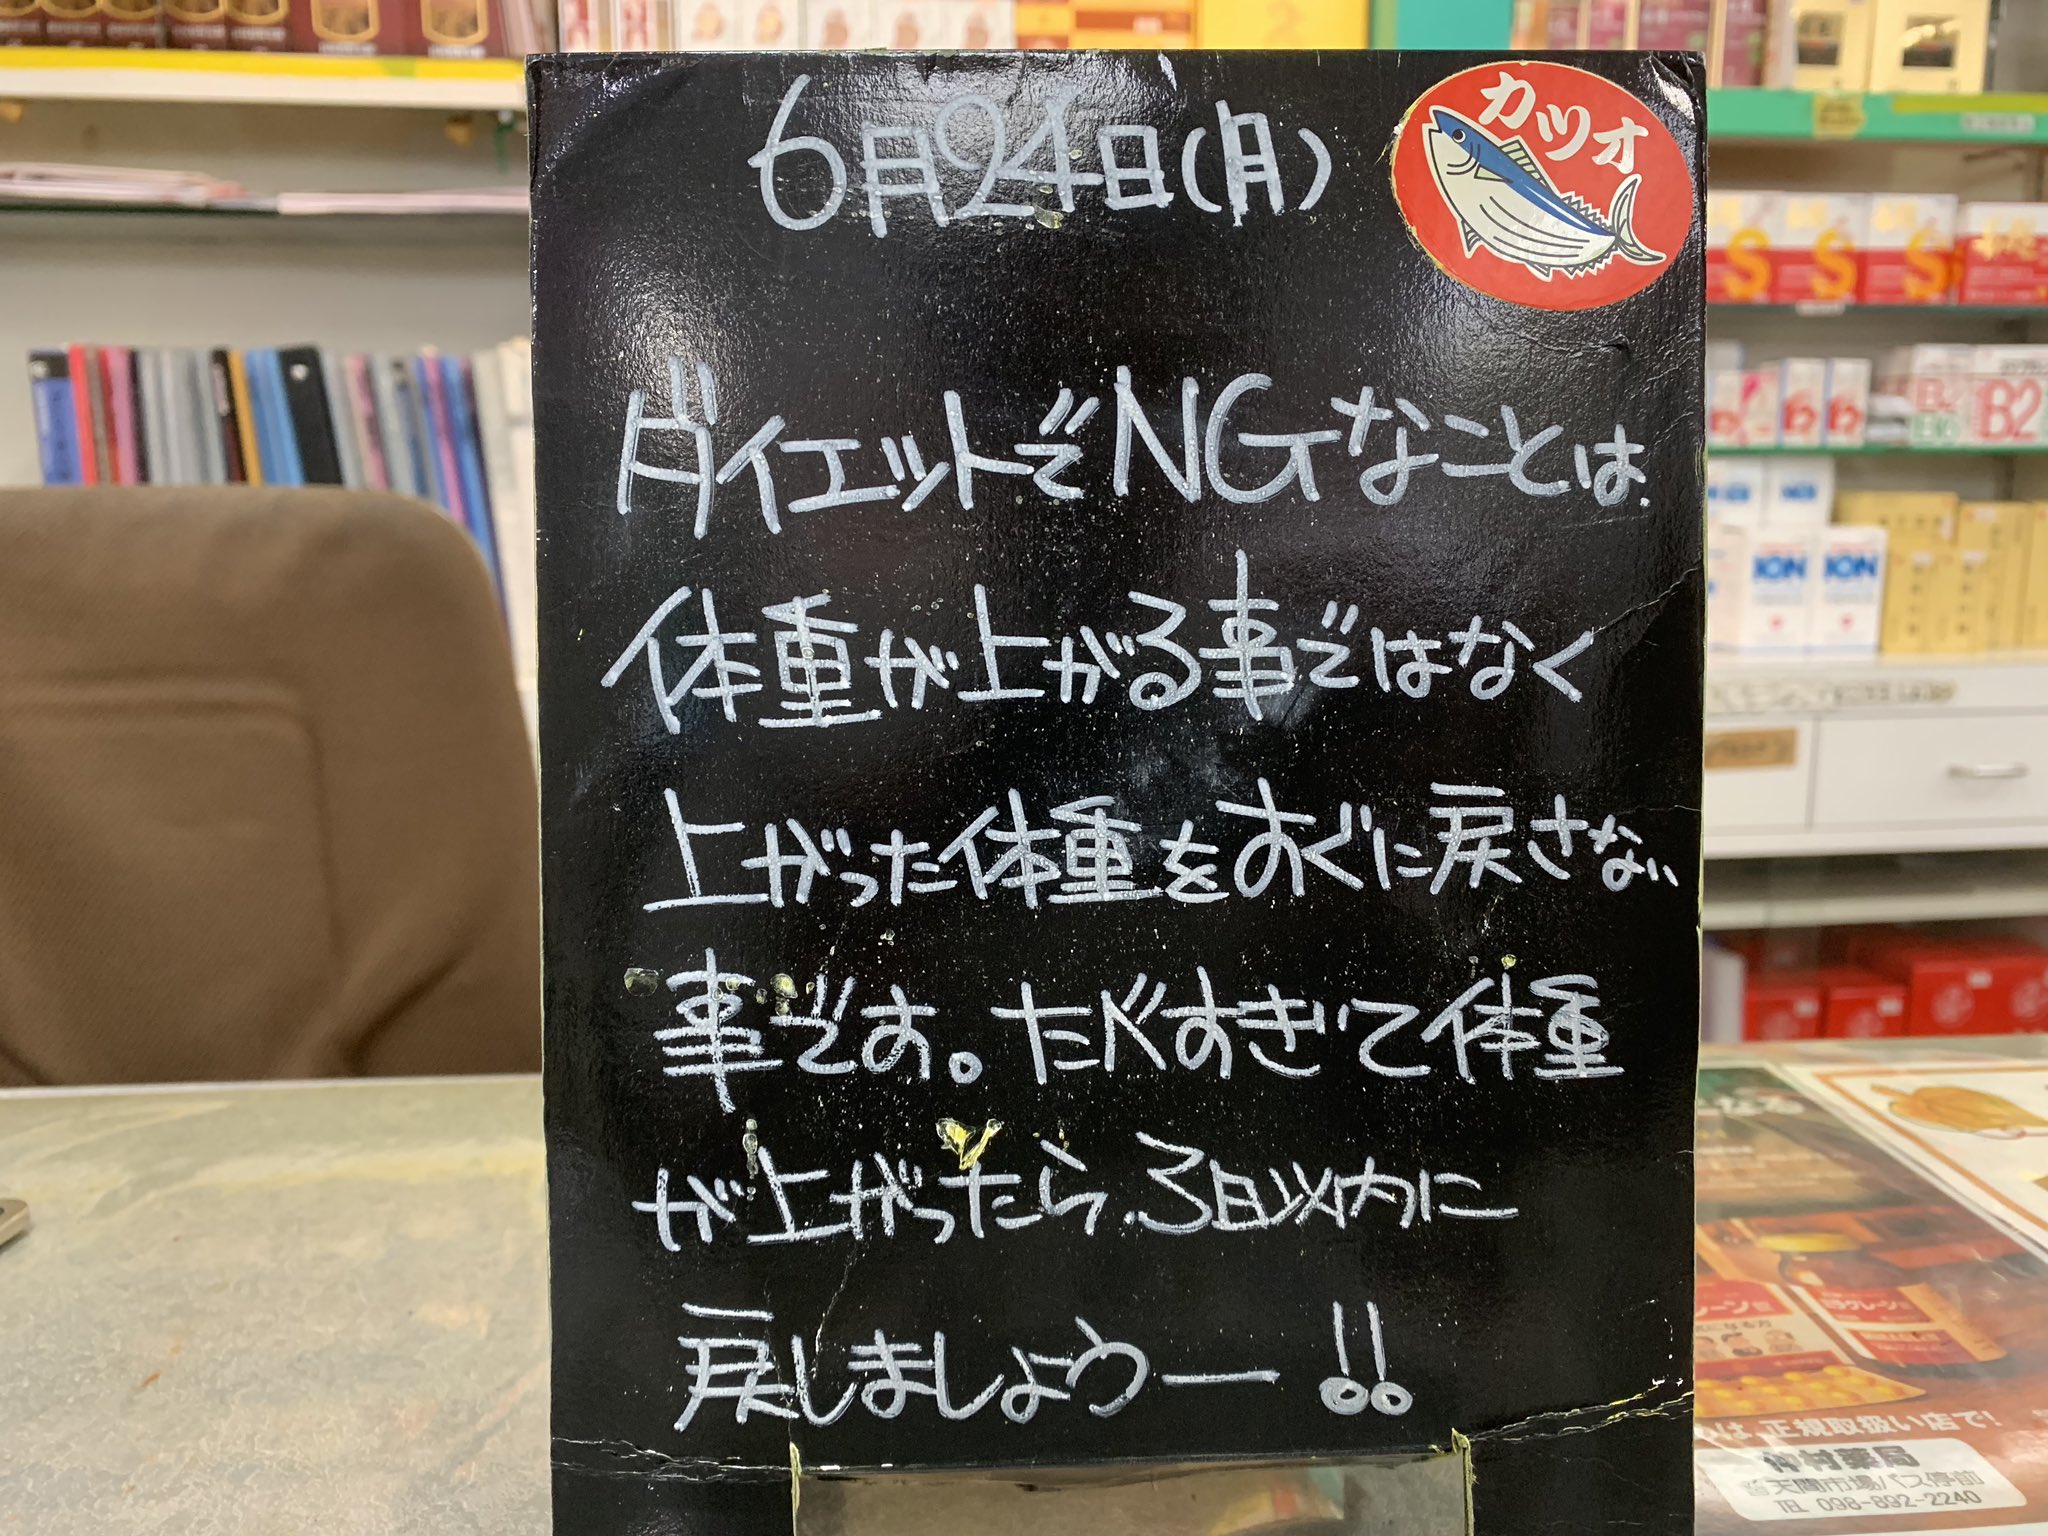 6月24日(月)
カツオ
ダイエットでNGなことは、
体重が上がる事ではなく
上がった体重をすぐに戻さない
事です。たべすぎて体重
が上がったら、3日以内に
戻しましょうー!!
S
S
S
B2
B2
ION
ION
は、正規取扱い店で!
仲村薬局
天間市場バス停前
TEL 098-892-2240